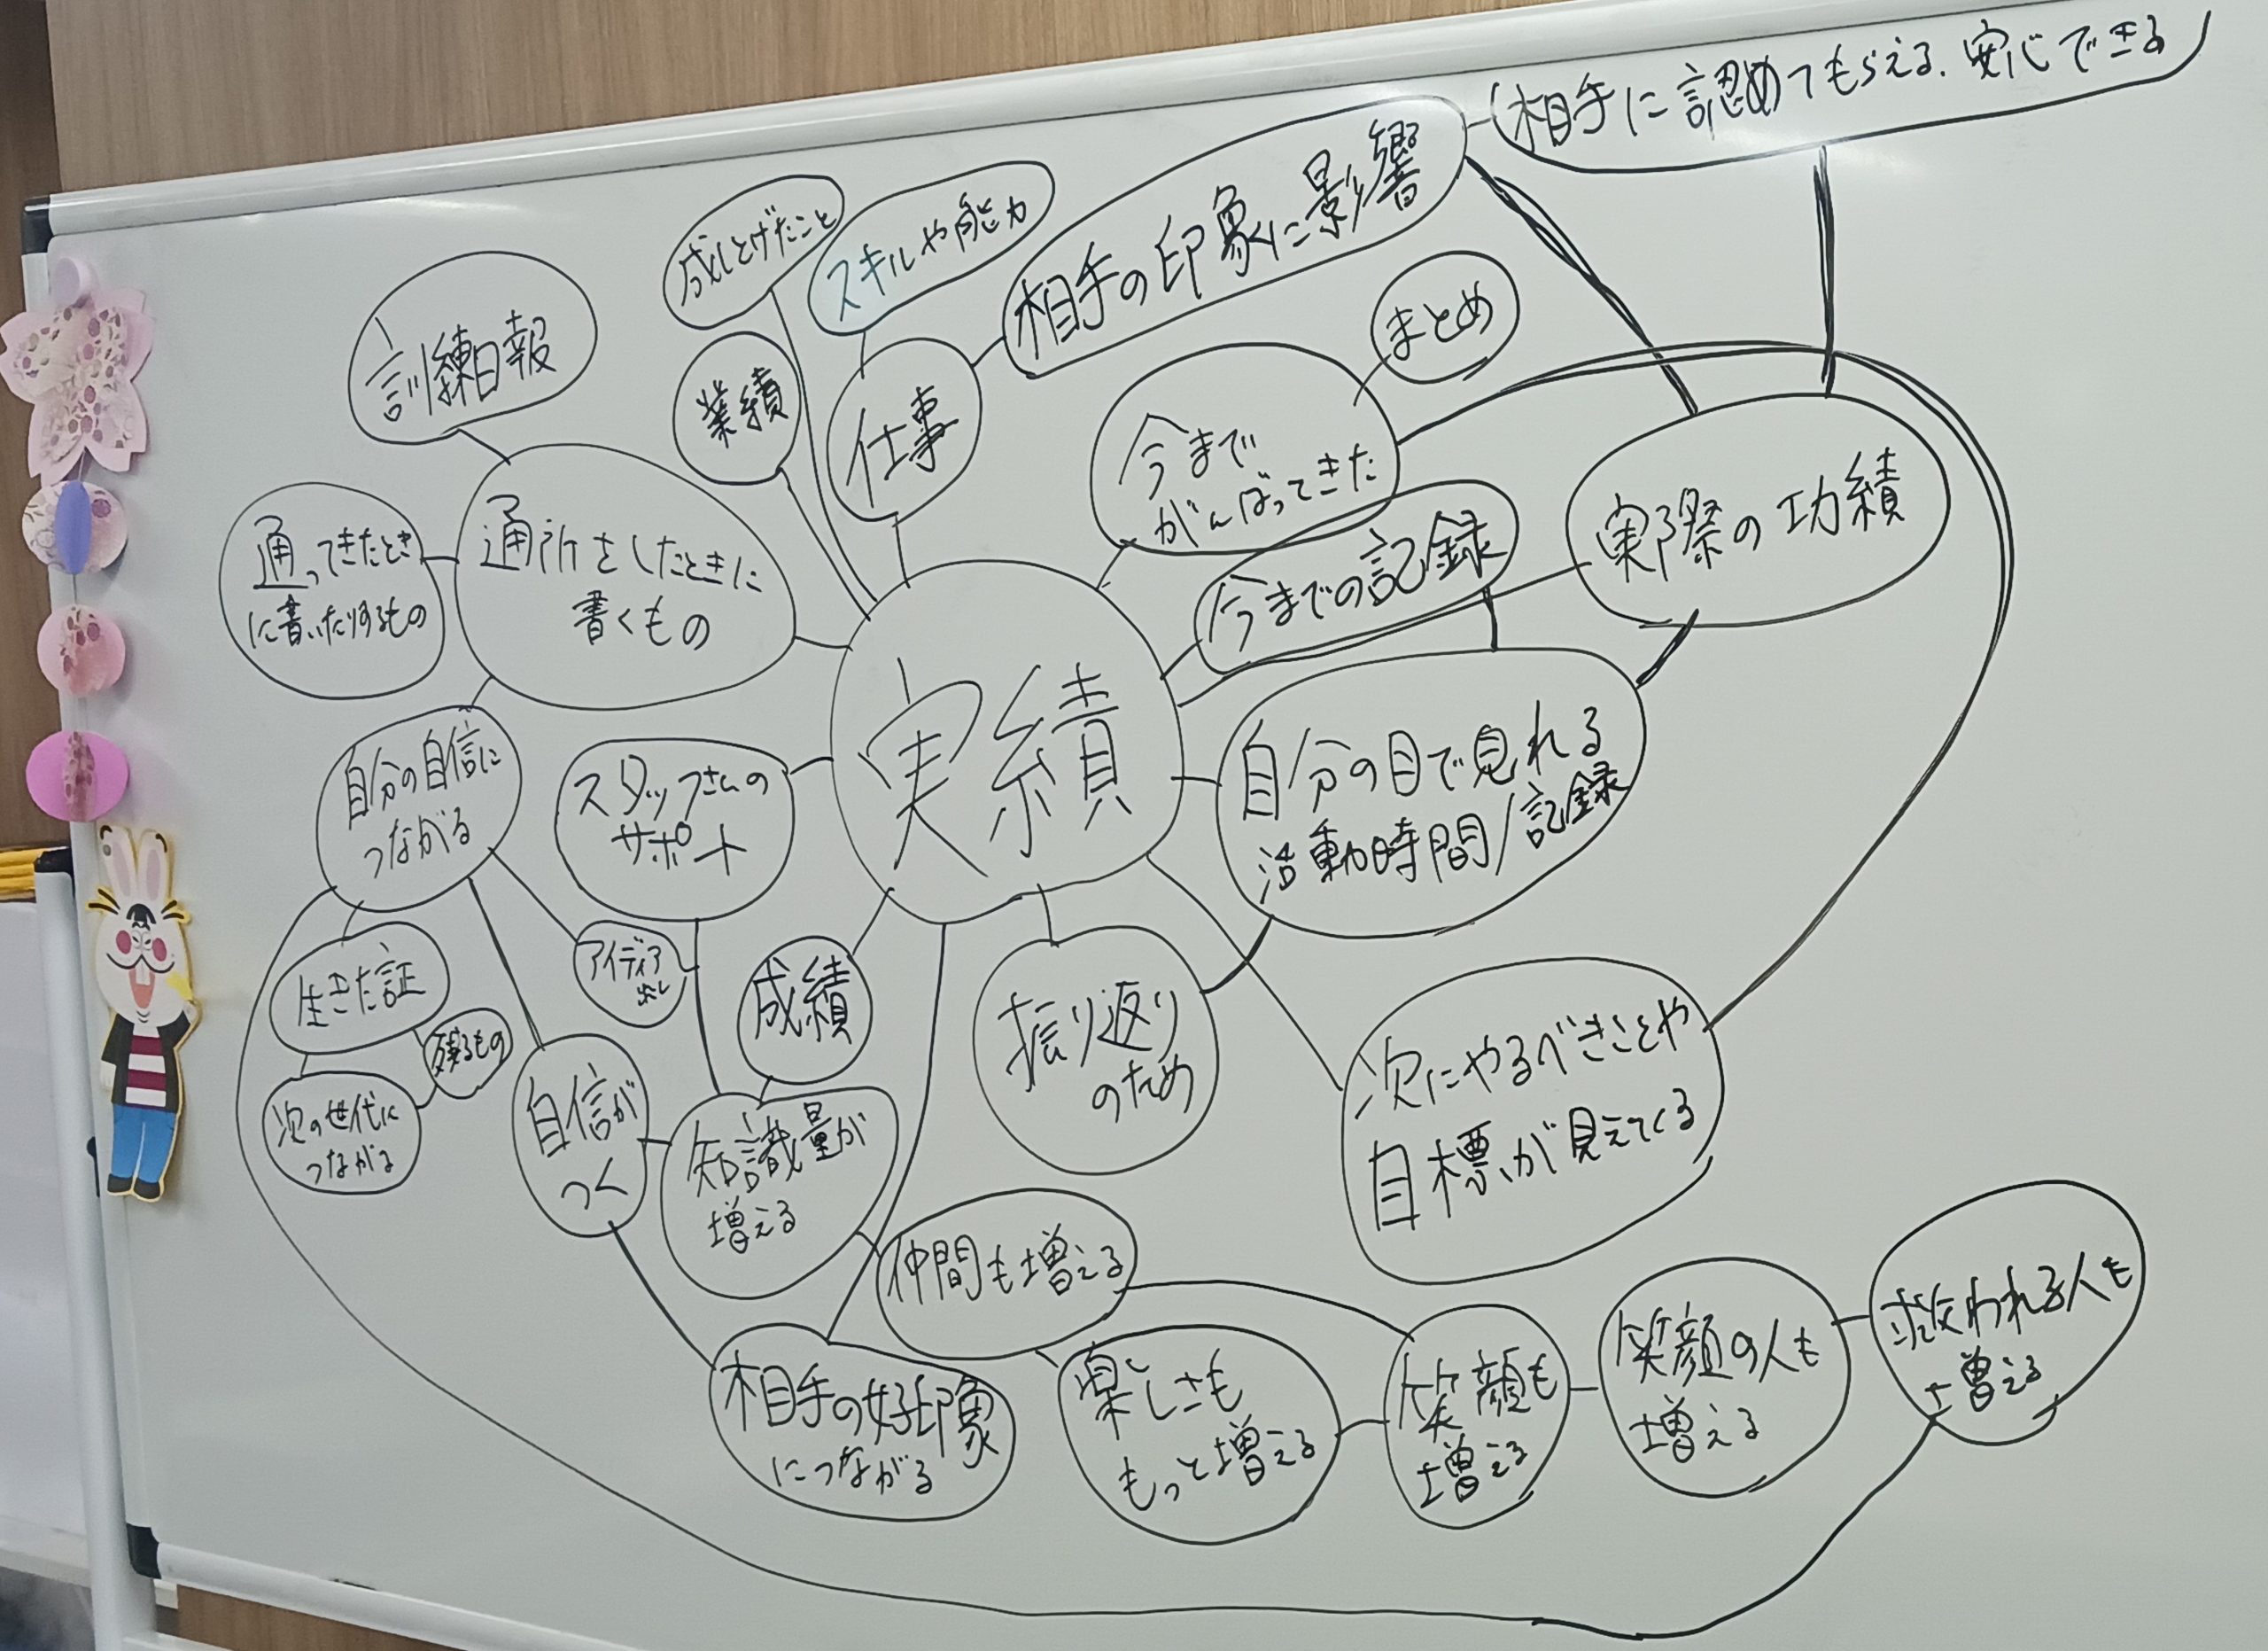 相手に認めてもらえる、安心できる
相手の印象に影響
成しとげたこと
スキルや能力
まとめ
訓練日報
業績
仕事
今まで
がんばってきた
実際の功績
通ってきたとき
に書いたりするもの
通所をしたときに
書くもの
今までの記録
実績
自分の目で見れる
活動時間/記録
自分の自信に
つながる
スタッフさんの
サポート
アイディア
出し
生きた証
残るもの
次の世代に
つながる
成績
振り返り
のため
次にやるべきことや
目標が見えてくる
自信が
つく
知識量が
増える
仲間も増える
相手の好印象
につながる
楽しさも
もっと増える
笑顔も
増える
笑顔の人も
増える
救われる人も
増える